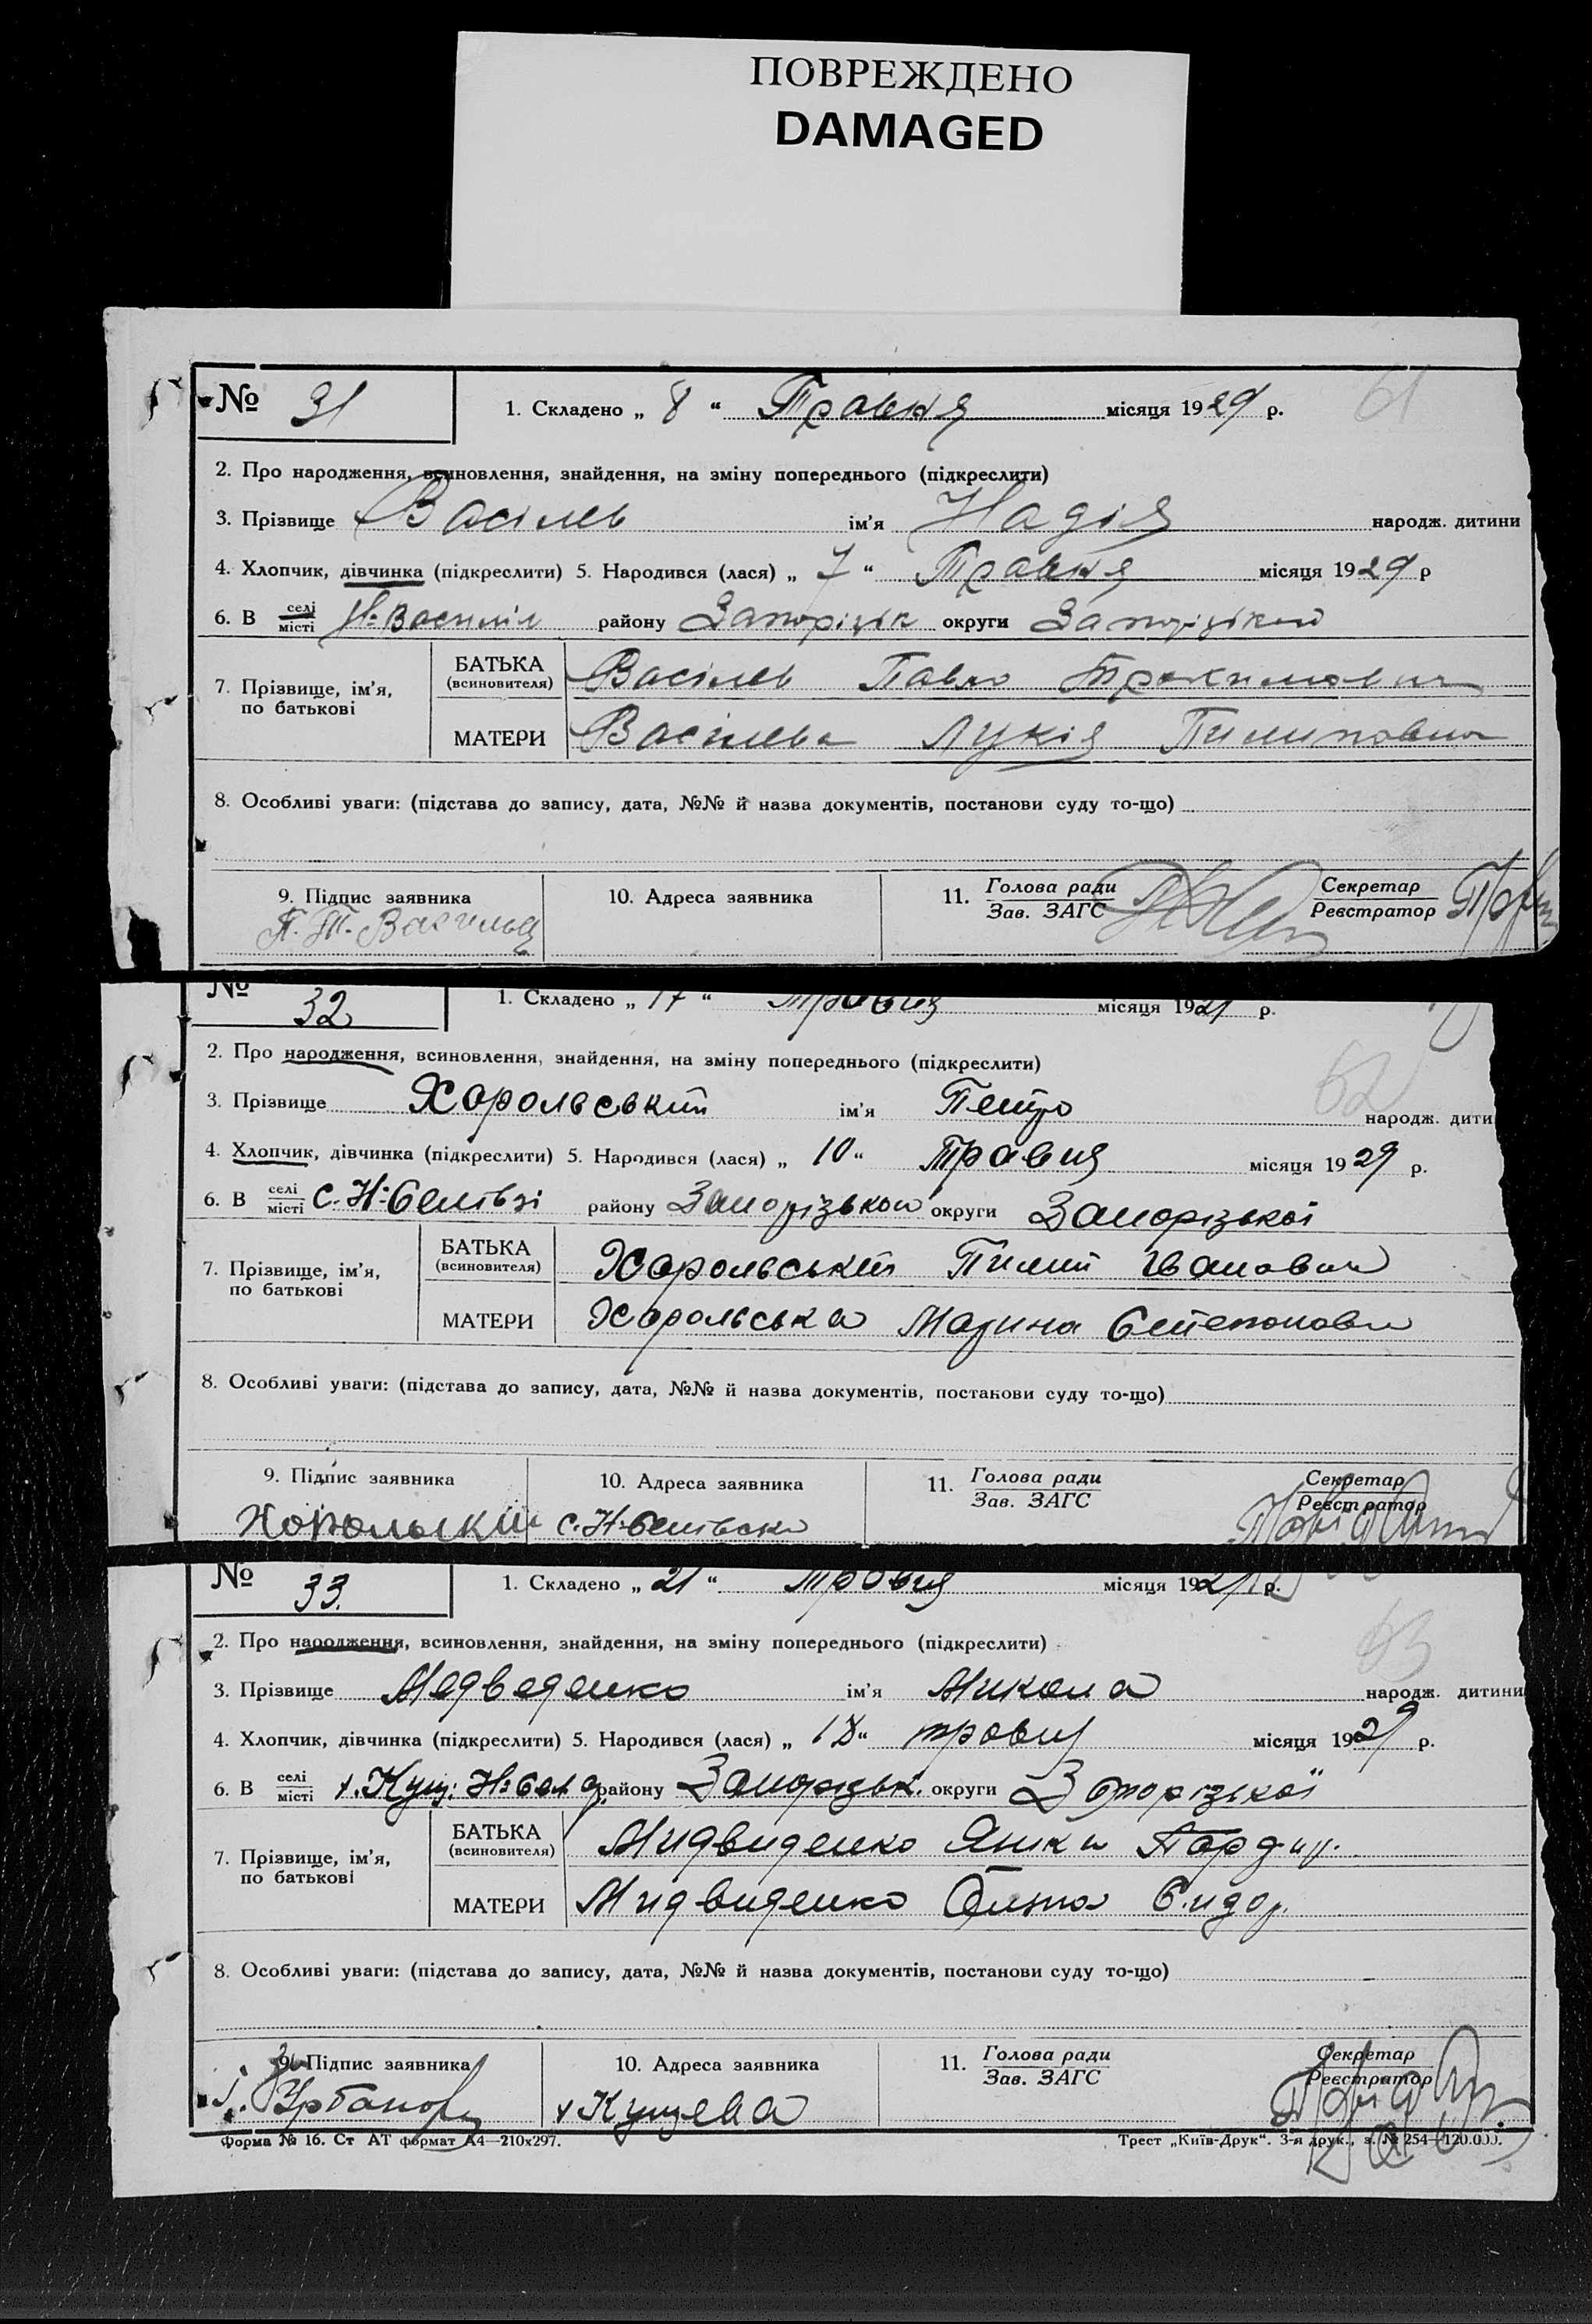 ПОВРЕЖДЕНО
DAMAGED
61
№ 31
1. Складено „ 8 “ Травня місяця 1929 р.
2. Про народження, всиновлення, знайдення, на зміну попереднього (підкреслити)
3. Прізвище Васілев ім’я Надія народж. дитини
4. Хлопчик, дівчинка (підкреслити) 5. Народився (лася) „ 7 “ Травня місяця 1929 р
6. В селі місті району Запоріжк округи
7. Прізвище, ім’я, по батькові
БАТЬКА (всиновителя) Васілев Павло
МАТЕРИ Васілева Лукія Пилиповна
8. Особливі уваги: (підстава до запису, дата, №№ й назва документів, постанови суду то-що)
9. Підпис заявника 10. Адреса заявника 11. Голова ради Зав. ЗАГС Секретар Реєстратор
П. Т.
62
№ 32
1. Складено „ 17 “ Травня місяця 1929 р.
2. Про народження, всиновлення, знайдення, на зміну попереднього (підкреслити)
3. Прізвище Харольський ім’я Петро народж. дити
4. Хлопчик, дівчинка (підкреслити) 5. Народився (лася) „ 10 “ Травня місяця 1929 р.
6. В селі місті району Запорізької округи Запорізької
7. Прізвище, ім’я, по батькові
БАТЬКА (всиновителя) Харольський Пилип Іванович
МАТЕРИ Харольська Марина Степановна
8. Особливі уваги: (підстава до запису, дата, №№ й назва документів, постанови суду то-що)
9. Підпис заявника 10. Адреса заявника 11. Голова ради Зав. ЗАГС Секретар Реєстратор
63
№ 33.
1. Складено „ 21 “ травня місяця 1929 р.
2. Про народження, всиновлення, знайдення, на зміну попереднього (підкреслити)
3. Прізвище Медведенко ім’я Микола народж. дитини
4. Хлопчик, дівчинка (підкреслити) 5. Народився (лася) „ 18 “ травня місяця 1929 р.
6. В селі місті району Запорізьк. округи Запорізької
7. Прізвище, ім’я, по батькові
БАТЬКА (всиновителя) Мидвиденко
МАТЕРИ Мидвиденко Сидор.
8. Особливі уваги: (підстава до запису, дата, №№ й назва документів, постанови суду то-що)
9. Підпис заявника 10. Адреса заявника 11. Голова ради Зав. ЗАГС Секретар Реєстратор
х Кущева
Форма № 16. Ст АТ формат А4—210х297. Трест „Київ-Друк“. 3-я друк., з. № 254—120.000.